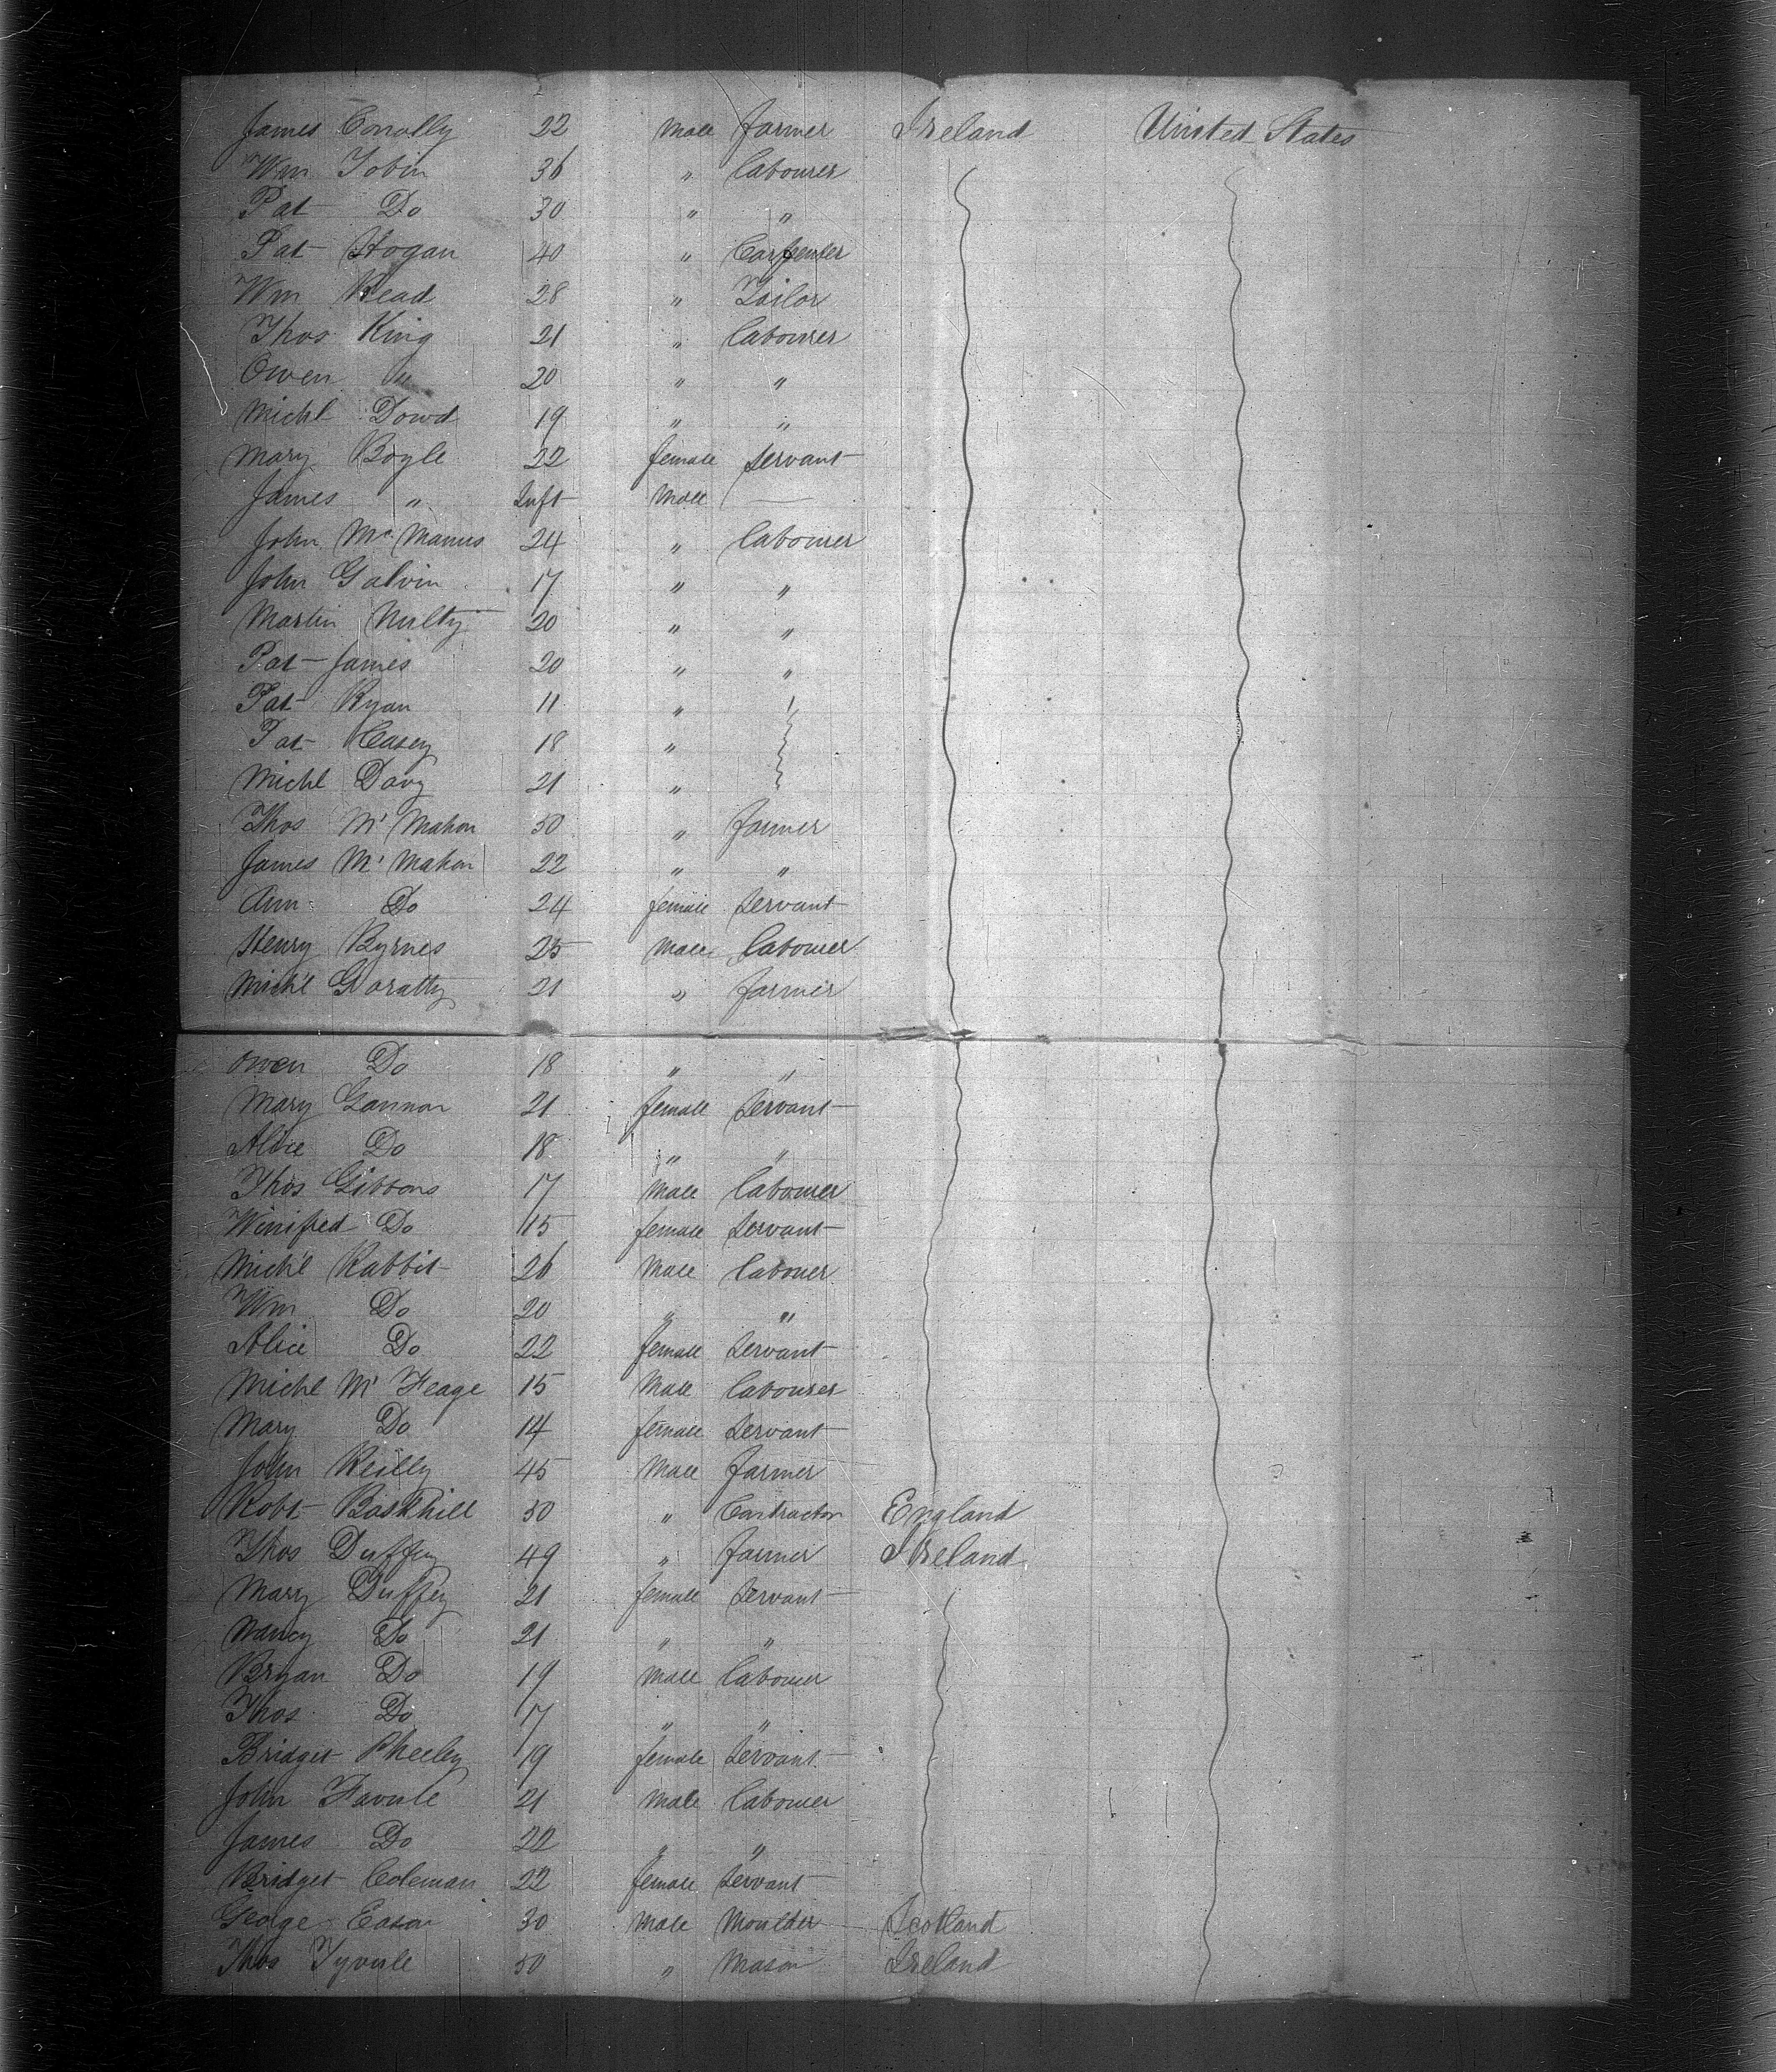 James Conolly 22 Male farmer Ireland United States
Wm Tobin 36 " labourer
Pat Do 30 " "
Pat Hogan 40 " Carpenter
Wm Read 28 " Tailor
Thos King 21 " labourer
Owen " 20 " "
Michl Dowd 19 " "
Mary Boyle 22 female servant
James " Inft Male —
John Mc Manus 24 " labourer
John Galvin 17 " "
Martin Nulty 20 " "
Pat James 20 " "
Pat Ryan 11 "
Pat Casey 18 "
Michl Davy 21 "
Thos Mc Mahon 30 " farmer
James Mc Mahon 22 " "
Ann Do 24 female servant
Henry Byrnes 25 Male labourer
Michl Goratty 21 " farmer
Owen Do 18 " "
Mary Gannon 21 female servant
Alice Do 18 " "
Thos Gibbons 17 Male labourer
Winifred Do 15 female servant
Michl Rabbit 26 Male labouer
Wm Do 20 " "
Alice Do 22 female servant
Michl Mc 15 Male labourer
Mary Do 14 female servant
John Reilly 45 Male farmer
Robt 30 " Contractor England
Thos Duffey 49 " farmer Ireland
Mary Duffey 21 female servant
Nancy Do 21 " "
Bryan Do 19 Male labourer
Thos Do 17 " "
Bridget Pheeley 19 female servant
John 21 Male labourer
James Do 22 " "
Bridget Coleman 22 female servant
George Eason 30 Male Moulder Scotland
Thos 50 " Mason Ireland